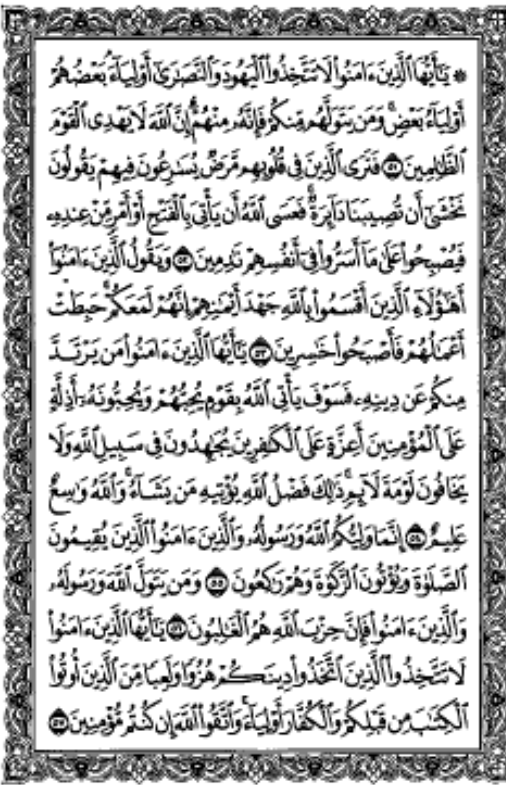 ۞ يَٰٓأَيُّهَا ٱلَّذِينَ ءَامَنُوا۟ لَا تَتَّخِذُوا۟ ٱلْيَهُودَ وَٱلنَّصَٰرَىٰٓ أَوْلِيَآءَۘ بَعْضُهُمْ
أَوْلِيَآءُ بَعْضٍۚ وَمَن يَتَوَلَّهُم مِّنكُمْ فَإِنَّهُۥ مِنْهُمْۗ إِنَّ ٱللَّهَ لَا يَهْدِى ٱلْقَوْمَ
ٱلظَّٰلِمِينَ ۝٥١ فَتَرَى ٱلَّذِينَ فِى قُلُوبِهِم مَّرَضٌ يُسَٰرِعُونَ فِيهِمْ يَقُولُونَ
نَخْشَىٰٓ أَن تُصِيبَنَا دَآئِرَةٌۚ فَعَسَى ٱللَّهُ أَن يَأْتِىَ بِٱلْفَتْحِ أَوْ أَمْرٍ مِّنْ عِندِهِۦ
فَيُصْبِحُوا۟ عَلَىٰ مَآ أَسَرُّوا۟ فِىٓ أَنفُسِهِمْ نَٰدِمِينَ ۝٥٢ وَيَقُولُ ٱلَّذِينَ ءَامَنُوٓا۟
أَهَٰٓؤُلَآءِ ٱلَّذِينَ أَقْسَمُوا۟ بِٱللَّهِ جَهْدَ أَيْمَٰنِهِمْۙ إِنَّهُمْ لَمَعَكُمْۚ حَبِطَتْ
أَعْمَٰلُهُمْ فَأَصْبَحُوا۟ خَٰسِرِينَ ۝٥٣ يَٰٓأَيُّهَا ٱلَّذِينَ ءَامَنُوا۟ مَن يَرْتَدَّ
مِنكُمْ عَن دِينِهِۦ فَسَوْفَ يَأْتِى ٱللَّهُ بِقَوْمٍ يُحِبُّهُمْ وَيُحِبُّونَهُۥٓ أَذِلَّةٍ
عَلَى ٱلْمُؤْمِنِينَ أَعِزَّةٍ عَلَى ٱلْكَٰفِرِينَ يُجَٰهِدُونَ فِى سَبِيلِ ٱللَّهِ وَلَا
يَخَافُونَ لَوْمَةَ لَآئِمٍۚ ذَٰلِكَ فَضْلُ ٱللَّهِ يُؤْتِيهِ مَن يَشَآءُۚ وَٱللَّهُ وَٰسِعٌ
عَلِيمٌ ۝٥٤ إِنَّمَا وَلِيُّكُمُ ٱللَّهُ وَرَسُولُهُۥ وَٱلَّذِينَ ءَامَنُوا۟ ٱلَّذِينَ يُقِيمُونَ
ٱلصَّلَوٰةَ وَيُؤْتُونَ ٱلزَّكَوٰةَ وَهُمْ رَٰكِعُونَ ۝٥٥ وَمَن يَتَوَلَّ ٱللَّهَ وَرَسُولَهُۥ
وَٱلَّذِينَ ءَامَنُوا۟ فَإِنَّ حِزْبَ ٱللَّهِ هُمُ ٱلْغَٰلِبُونَ ۝٥٦ يَٰٓأَيُّهَا ٱلَّذِينَ ءَامَنُوا۟
لَا تَتَّخِذُوا۟ ٱلَّذِينَ ٱتَّخَذُوا۟ دِينَكُمْ هُزُوًا وَلَعِبًا مِّنَ ٱلَّذِينَ أُوتُوا۟
ٱلْكِتَٰبَ مِن قَبْلِكُمْ وَٱلْكُفَّارَ أَوْلِيَآءَۚ وَٱتَّقُوا۟ ٱللَّهَ إِن كُنتُم مُّؤْمِنِينَ ۝٥٧